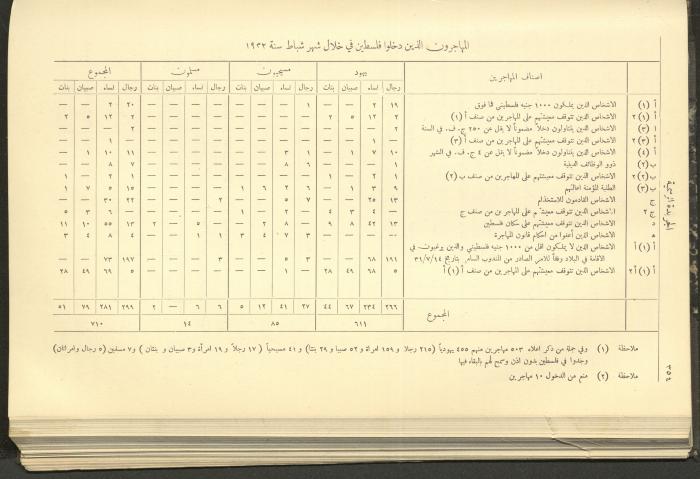 المهاجرون الذين دخلوا فلسطين في خلال شهر شباط سنة ١٩٣٢
اصناف المهاجرين يهود مسيحيون مسلمون المجموع
رجال نساء صبيان بنات رجال نساء صبيان بنات رجال نساء صبيان بنات رجال نساء صبيان بنات
أ (١) الاشخاص الذين يملكون ١٠٠٠ جنيه فلسطيني فما فوق ١٩ ٢ — — ١ — — — — — — — ٢٠ ٢ — —
أ (١) ٢ الاشخاص الذين تتوقف معيشتهم على المهاجرين من صنف أ (١) ٢ ١٢ ٥ ٢ — — — — — — — — ٢ ١٢ ٥ ٢
أ (٣) الاشخاص الذين يتناولون دخلاً مضموناً لا يقل عن ٢٥٠ ج. ف. في السنة ٢ — — — — — — — — — — — ٢ — — —
أ (٣) ٢ الاشخاص الذين تتوقف معيشتهم على المهاجرين من صنف أ (٣) — ١ — — — — — — — — — — — ١ — —
أ (٤) الاشخاص الذين يتناولون دخلاً مضموناً لا يقل عن ٤ ج. ف. في الشهر ١٠ ٧ ١ — ١ ٣ — ١ — — — — ١١ ١٠ ١ ١
ب (٢) ذوو الوظائف الدينية
ب (٢) ٢ الاشخاص الذين تتوقف معيشتهم على المهاجرين من صنف ب (٢) ١ ٢ — ١ — — — — — — — — ١ ٢ — ١
ب (٣) الطلبة المؤمنة اعالتهم ٩ ٣ ١ — ٦ ٢ ٦ ١ — — — — ١٥ ٥ ٧ ١
ج الاشخاص القادمون للاستخدام ١٣ ٢٥ — — ٧ ٥ — — ٢ — — — ٢٢ ٣٠ — —
ج ٢ الاشخاص الذين تتوقف معيشتهم على المهاجرين من صنف ج — ٤ ٣ ٤ — ٢ — ١ — — — — — ٦ ٣ ٥
د الاشخاص الذين تتوقف معيشتهم على سكان فلسطين ١٣ ٤٢ ٨ ٩ — ٨ ٢ — — ٥ — ٢ ١٣ ٥٥ ١٠ ١١
ه الاشخاص الذين أعفوا من احكام قانون المهاجرة
أ (١) أ الاشخاص الذين لا يملكون اقل من ١٠٠٠ جنيه فلسطيني والذين يرغبون في
الاقامة في البلاد وفقاً للامر الصادر من المندوب السامي بتاريخ ٣١/٧/١٤ ١٩١ ٦٨ — — ٣ ٥ — — ٣ — — — ١٩٧ ٧٣ — —
أ (١) أ ٢ الاشخاص الذين تتوقف معيشتهم على المهاجرين من صنف أ (١) أ ٥ ٦٨ ٤٩ ٢٨ — ١ — — — — — — ٥ ٦٩ ٤٩ ٢٨
المجموع ٢٦٦ ٢٣٤ ٦٧ ٤٤ ٢٧ ٤١ ١٢ ٥ ٦ ٦ — ٢ ٢٩٩ ٢٨١ ٧٩ ٥١
٦١١ ٨٥ ١٤ ٧١٠
ملاحظة (١) وفي جملة من ذكر اعلاه ٥٠٣ مهاجرين منهم ٤٥٥ يهودياً (٢١٥ رجلا و ١٥٩ امرأة و ٥٢ صبيا و ٢٩ بنتا) و ٤١ مسيحياً (١٧ رجلاً و ١٩ امرأة و٣ صبيان و بنتان) و ٧ مسلمين (٥ رجال وامرأتان)
وجدوا في فلسطين بدون اذن وسمح لهم بالبقاء فيها
ملاحظة (٢) منع من الدخول ١٠ مهاجرين
الجريدة الرسمية
٣٥٤